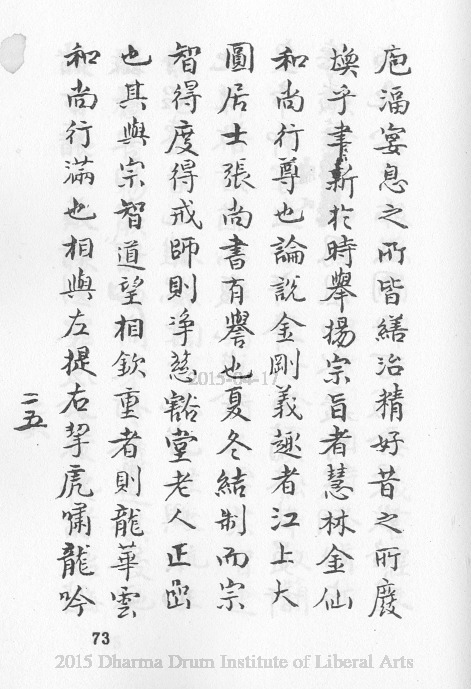 庖湢宴息之所皆繕治精好昔之所廢
煥乎聿新於時舉揚宗旨者慧林金仙
和尚行尊也論說金剛義趣者江上大
圓居士張尚書有譽也夏冬結制而宗
智得度得戒師則淨慈豁堂老人正嵒
也其與宗智道望相欽重者則龍華雲
和尚行滿也相與左提右挈虎嘯龍吟
二五
2015-04-17
73
2015 Dharma Drum Institute of Liberal Arts